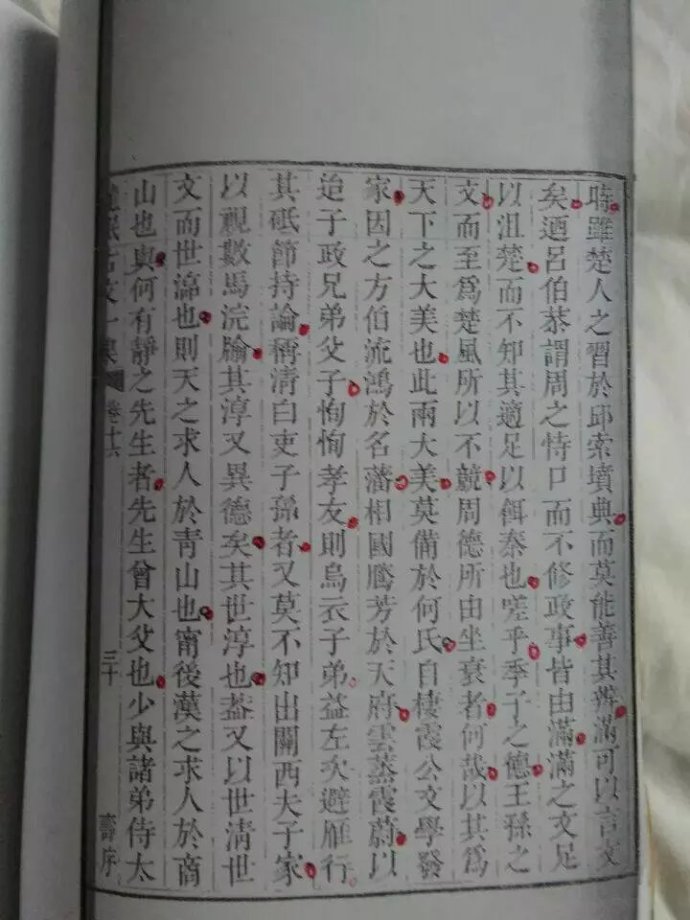 時雖楚人之習於邱索墳典而莫能善其辭滿可以言文
矣迺呂伯恭謂周之恃口而不修政事皆由滿滿之文足
以沮楚而不知其適足以餌秦也嗟乎季子之德王孫之
文而至爲楚風所以不競周德所由坐衰者何哉以其爲
天下之大美也此兩大美莫備於何氏自棲霞公文學發
家因之方伯流鴻於名藩相國騰芳於天府雲蒸霞蔚以
迨子政兄弟父子恂恂孝友則烏衣子弟益左次避雁行
其砥節持論稱清白吏子孫者又莫不知出關西夫子家
以視數馬浣牏其淳又異德矣其世淳也盍又以世清世
文而世諡也則天之求人於青山也甯後蓂之求人於商
山也與何有靜之先生者先生曾大父也少與諸弟侍太
古文 卷十六 三十 壽序